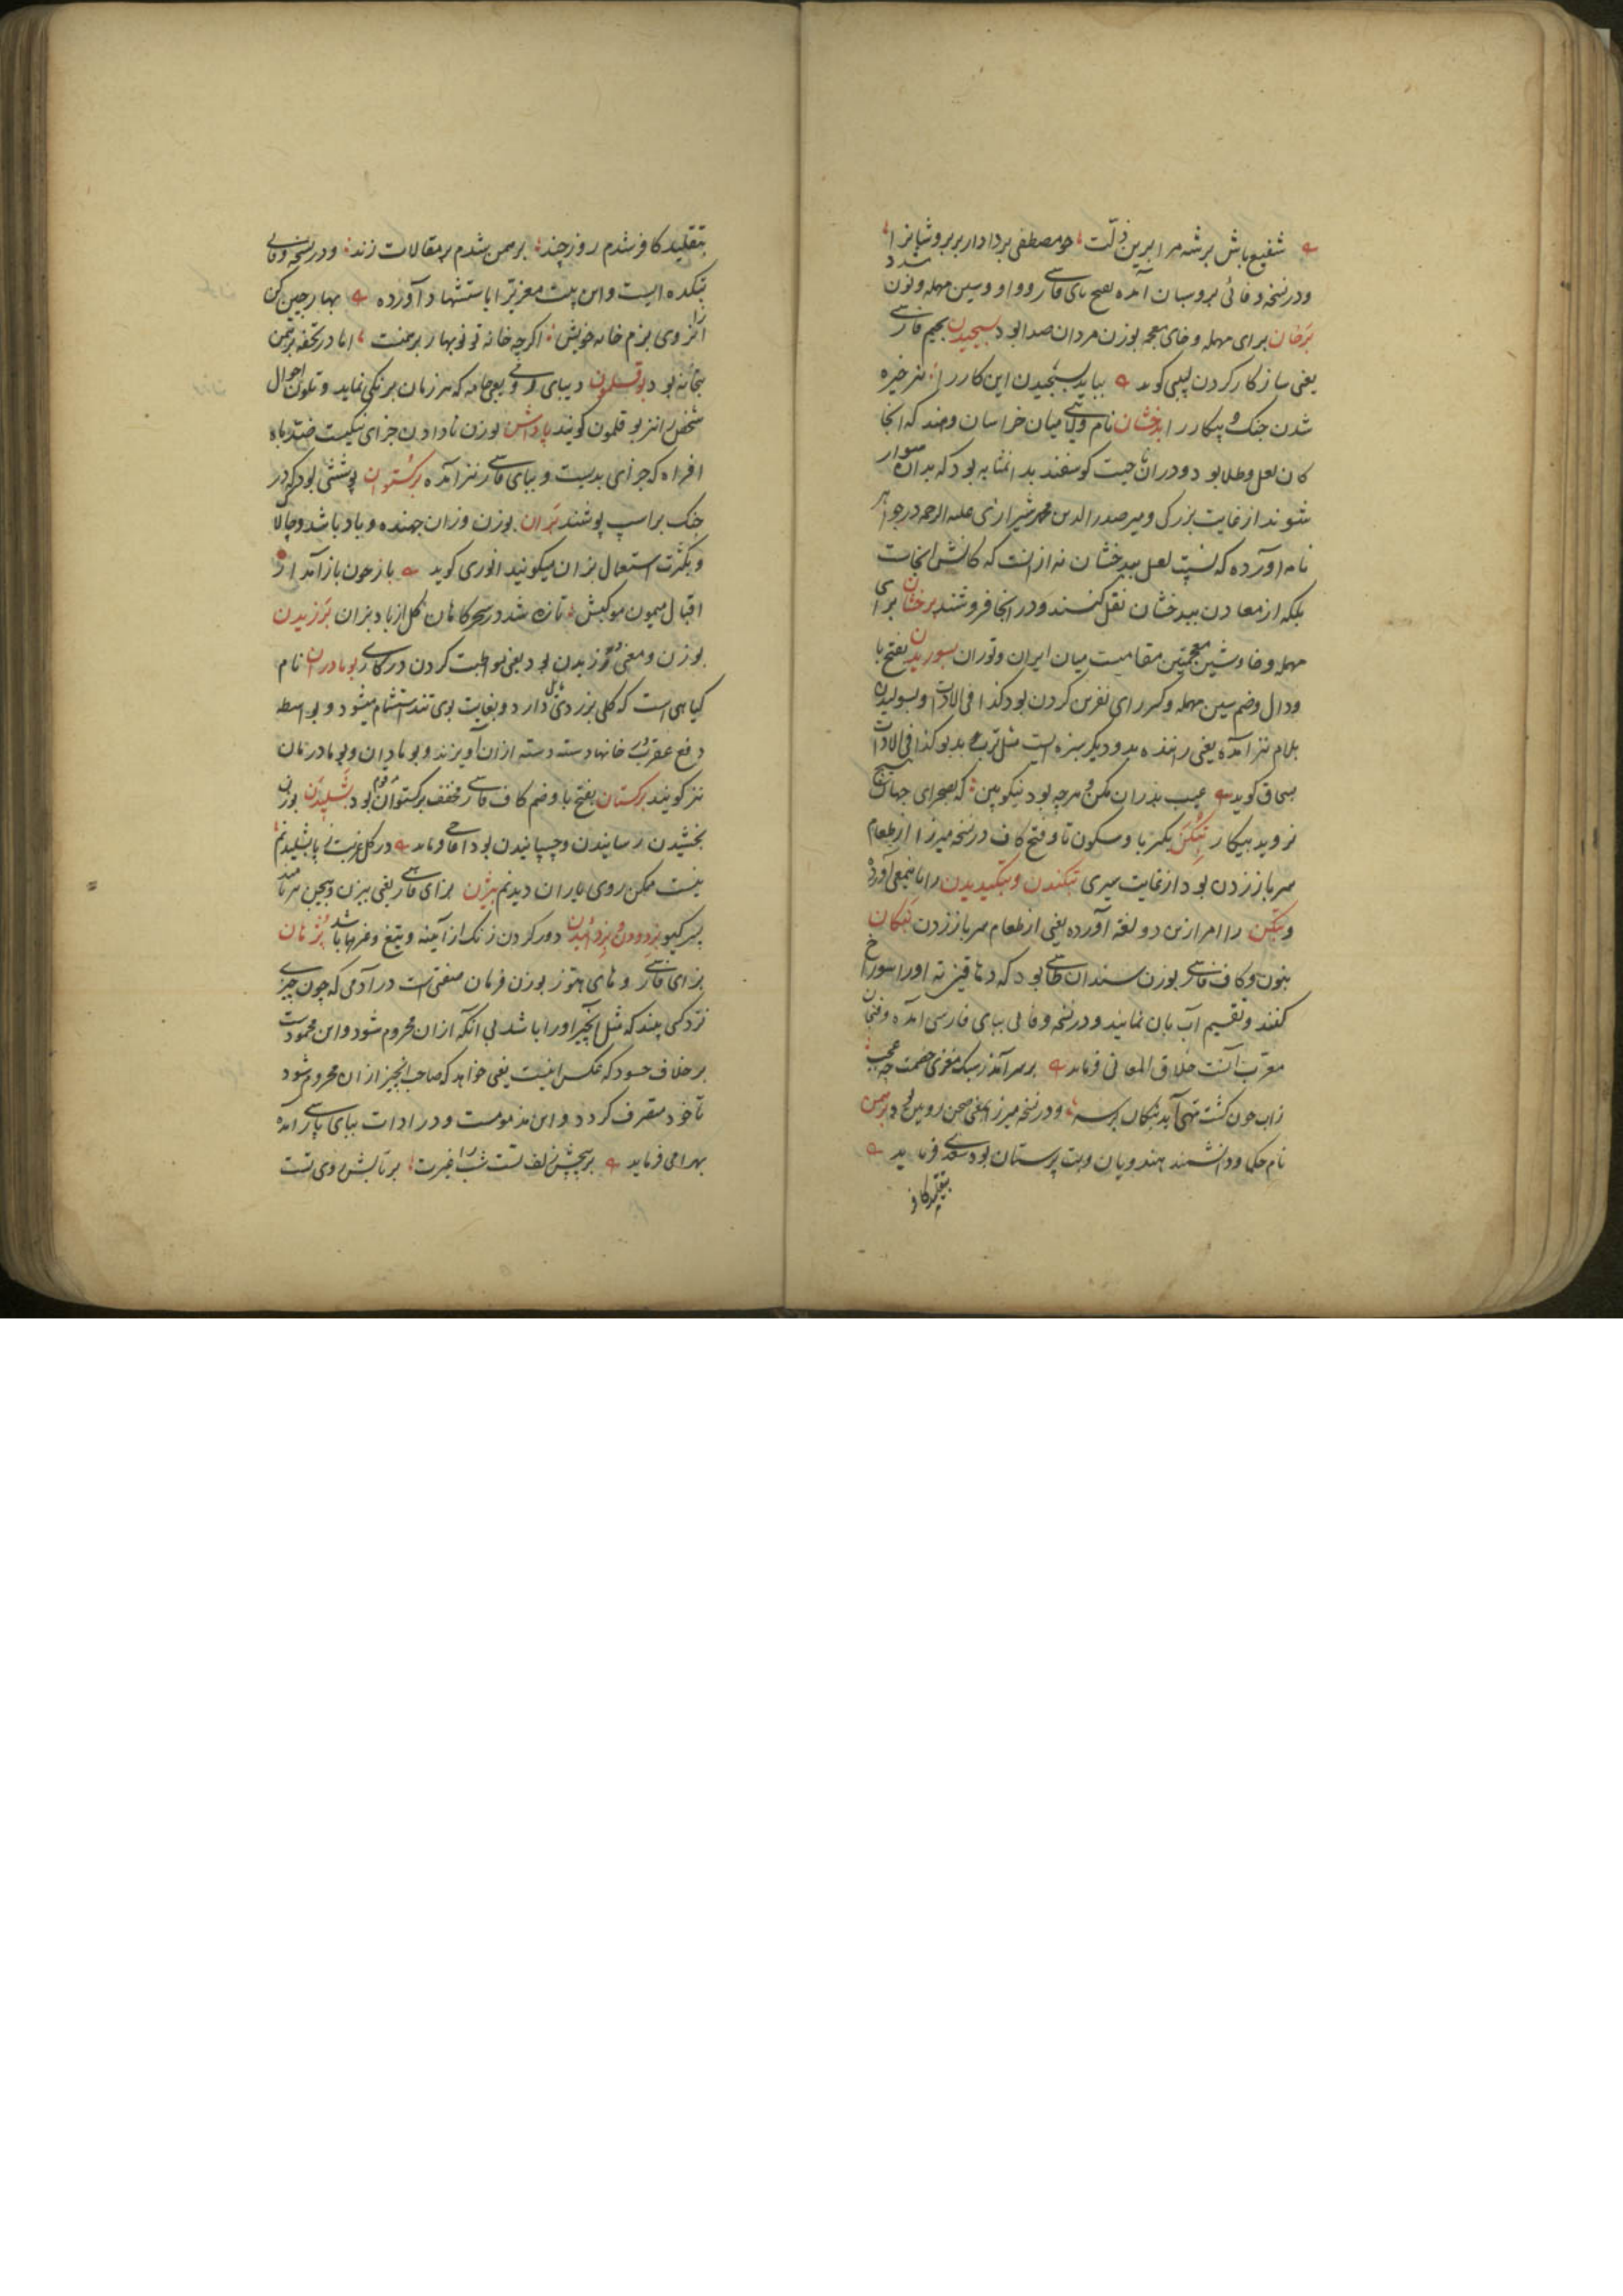 شفیع باش بر شه مرا برین زلت چو مصطفی بر دادار بر بروشانرا
و در نسخه وفائی بروسان آمده بفتح بای فارسی و واو و سین مهمله و نون
برخان برای مهمله و خای معجمه بوزن مردان صدا بود بسیجیدن بجیم فارسی
یعنی ساز کار کردن لبیبی کوید بباید بسیجیدن این کار را نیز خیره
شدن جنک و پیکار را بدخشان نام ولایتی میان خراسان و هند که آنجا
کان لعل و طلا بود و در آن جیت کوسفند بدانمثابه بود که بدان سوار
شوند از غایت بزرکی و میر صدر الدین محمد شیرازی علیه الرحمه در جواهر
نامه آورده که نسبت لعل ببدخشان نه از آنست که کانش آنجاست
بلکه از معادن ببدخشان نقل کنند و در آنجا فروشند برخشان برای
مهمله و خا و شین معجمتین مقامیست میان ایران و توران بسوریدن بفتح با
و دال و ضم سین مهمله و کسر رای نفرین کردن بود کذا فی الادات و بسولیدن
بلام نیز آمده یعنی راننده بد و دیکر سبزه ایست مثل ترب بد بو کذا فی الادات
بسحاق کوید عیب بدران مکن و هرچه بود نیکو بین که بصحرای جهان هیچ
نروید بیکار بتکن بکسر با و سکون تا و فتح کاف در نسخه میرزا از طعام
سر باز زدن بود از غایت سیری بتکندن و بتکیدیدن را باینمعنی آورده
و بتکن را امر ازین دو لغة آورده یعنی از طعام سر باز زدن بنکان
بنون و کاف فارسی بوزن سندان طاسی بود که دهاقین ته او را سوراخ
کنند و تقسیم آب بآن نمایند و در نسخه وفائی ببای فارسی آمده و فنجان
معرب آنست خلاق المعانی فرماید بر سر آمد ز سبک مغزی خصمت چه عجب
زآب چون کشت تهی آید بنکان بر سر و در نسخه میرزا یعنی صحن رویین بود برهمن
نام حکما و دانشمند هندویان و بت پرستان بود سعدی فرماید
بتقلید کافر
بتقلید کافر شدم روز چند برهمن شدم بر مقالات زند و در نسخه وفائی
بتکده ایست و این بیت معزی را باستشهاد آورده بهار چین کن
از روی بزم خانه خویش اکرچه خانه تو نوبهار برهمنست اما در تحفه برهمن
بتخانه بود بوقلمون دیبای رومی یعنی جامه که هر زمان برنکی نماید و متلون احوال
شخص را نیز بوقلمون کویند پاداشن بوزن نادادن جزای نیکیست ضد باد
افراه که جزای بدیست و ببای فارسی نیز آمده برکستوان پوششی بود که در
جنک بر اسپ پوشند بزان بوزن وزان جهنده و باد باشد و چالاک
و بکثرت استعمال بزان میکویند انوری کوید باز چون باز آمد از
اقبال میمون موکبش تازه شد در سحرکاهان کل از باد بزان برزیدن
بوزن و معنی ورزیدن بود یعنی مواظبت کردن در کاری بومادران نام
کیاهی است که کلی بزردی مایل دارد و بغایت بوی تند استشمام میشود و بواسطه
دفع عقرب در خانها دسته دسته از آن آویزند و بومادران و بوی مادران
نیز کویند برکستان بفتح با و ضم کاف فارسی مخفف برکستوان بود بشلیدن بوزن
بخشیدن رسانیدن و چسپانیدن بود در کل غربت پا بشلیدنم
نیست ممکن روی یاران دیدنم بیژن بزای فارسی یعنی بیزن و بیجن هر نامند
پسر کیو بزدودن و بزداییدن دور کردن زنک از آینه و تیغ و غیرها باشد پژهان
بزای فارسی و های هوز بوزن فرمان صفتی است در آدمی که چون چیزی
نزد کسی بیند که مثل آن چیز او را باشد بی آنکه او از آن محروم شود و این محمودست
بر خلاف حسود که عکس اینست یعنی خواهد که صاحب آن چیز از آن محروم شود
تا خود متصرف کردد و این مذمومست و در ادات ببای پارسی آمده
بهرامی فرماید بر پیچش زلف تست شب را غیرت بر تابش روی تست